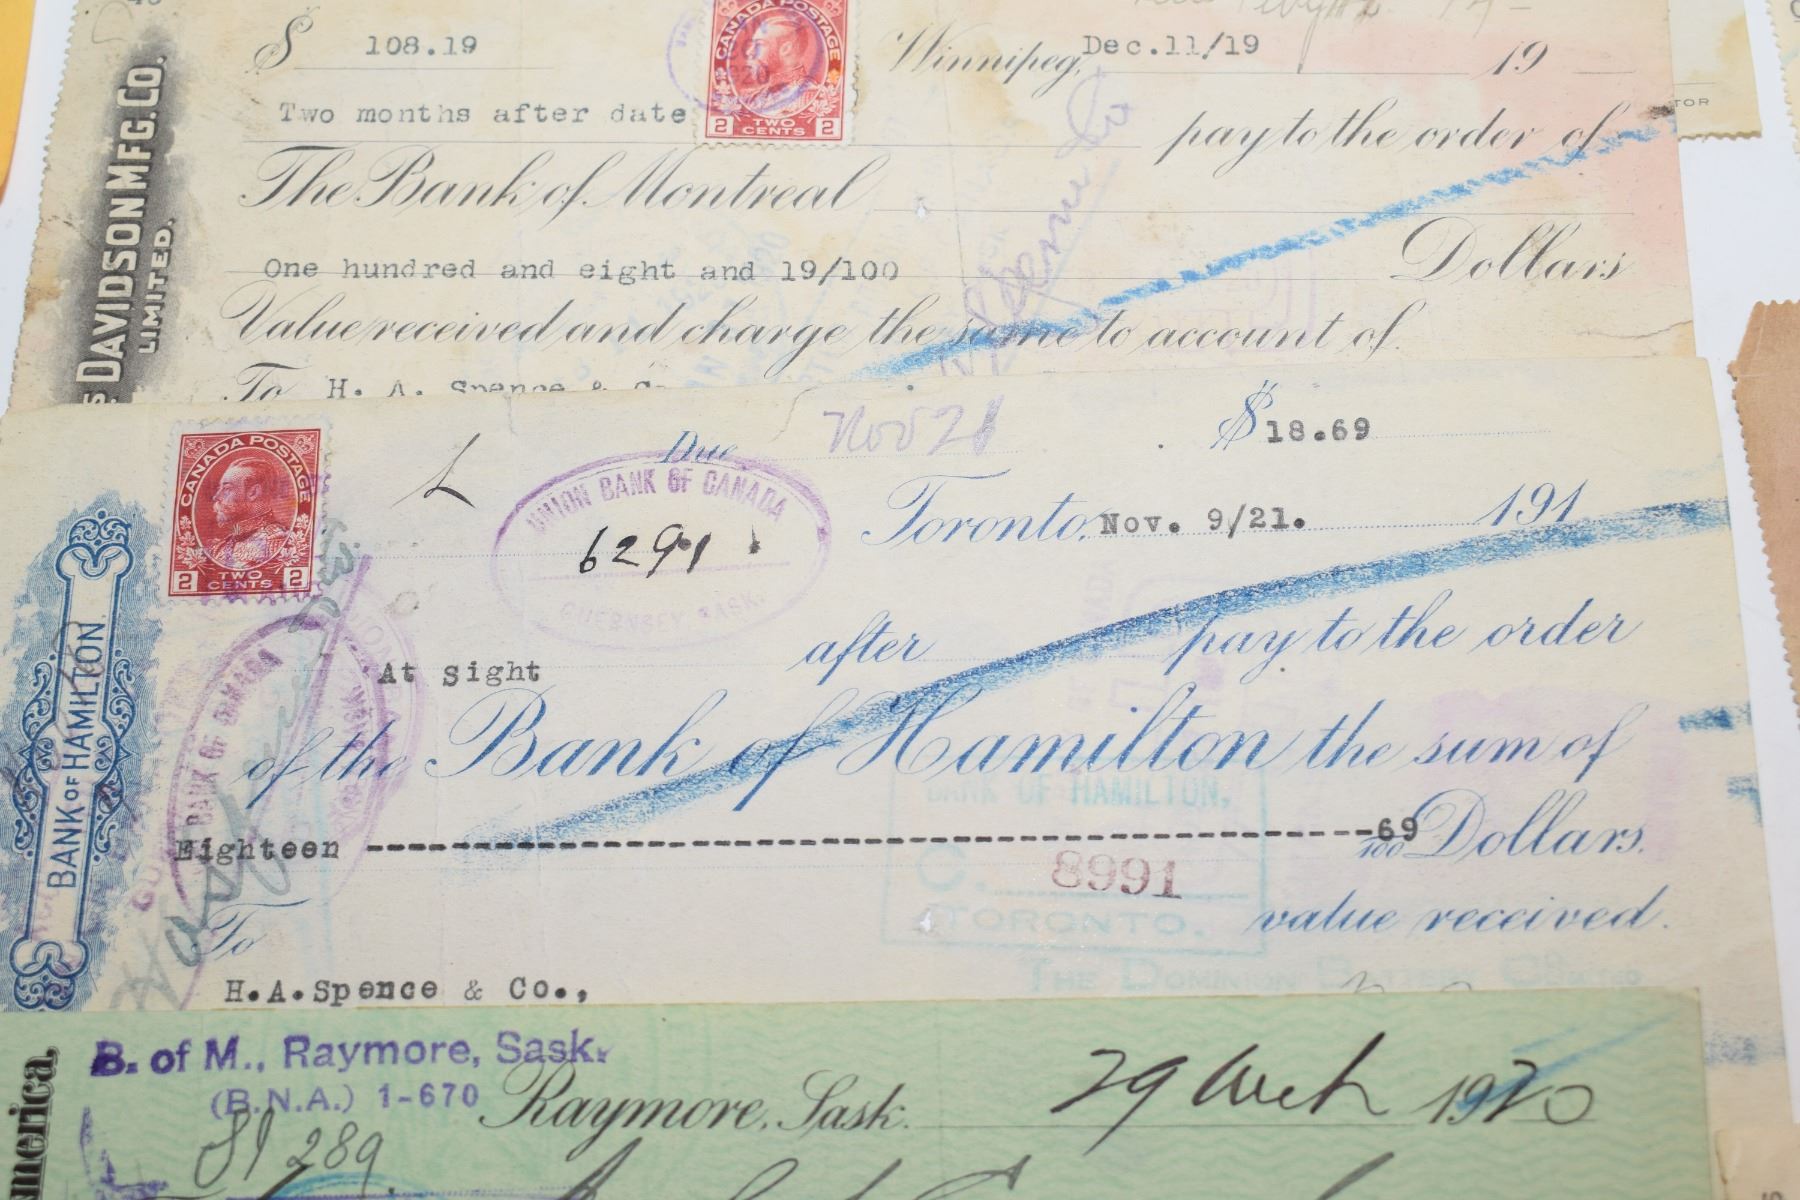 $ 108.19
CANADA POSTAGE
2 TWO CENTS 2
Winnipeg, Dec.11/19 19
Two months after date
pay to the order of
The Bank of Montreal
One hundred and eight and 19/100 Dollars
Value received and charge the same to account of
To H. A. Spence & Co
DAVIDSON MFG. CO.
LIMITED.
TOR
CANADA POSTAGE
2 TWO CENTS 2
Due Nov 21
$18.69
UNION BANK OF CANADA
6291
GUERNSEY, SASK.
Toronto, Nov. 9/21. 191
At sight after pay to the order
BANK OF CANADA
of the Bank of Hamilton the sum of
BANK OF HAMILTON
BANK OF HAMILTON,
Eighteen ---69/100 Dollars.
8991
C.
TORONTO.
value received.
To
THE DOMINION BATTERY CO LIMITED
H.A.Spence & Co.,
B. of M., Raymore, Sask.
(B.N.A.) 1-670
Raymore, Sask. 29 1920
289
merica,